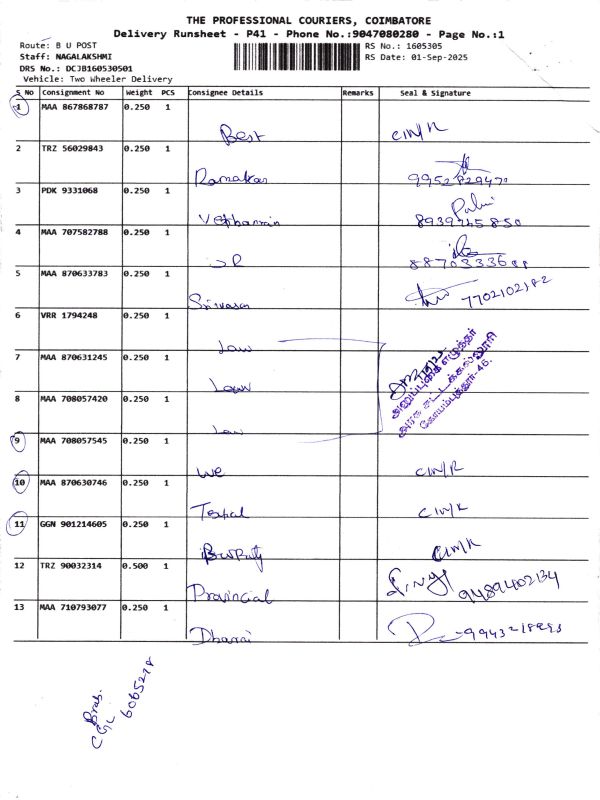 THE PROFESSIONAL COURIERS, COIMBATORE
Delivery Runsheet - P41 - Phone No.:9047080280 - Page No.:1
Route: B U POST
RS No.: 1605305
Staff: NAGALAKSHMI
RS Date: 01-Sep-2025
DRS No.: DCJB160530501
Vehicle: Two Wheeler Delivery
S No Consignment No Weight PCS Consignee Details Remarks Seal & Signature
1 MAA 867868787 0.250 1
Best
2 TRZ 56029843 0.250 1
3 PDK 9331068 0.250 1
8939745850
4 MAA 707582788 0.250 1
5 MAA 870633783 0.250 1
7702102182
6 VRR 1794248 0.250 1
Law
7 MAA 870631245 0.250 1
Law
8 MAA 708057420 0.250 1
Law
அலுவலக எழுத்தர்
அரசு சட்டக்கல்லூரி
கோயம்புத்தூர்-46.
9 MAA 708057545 0.250 1
We
10 MAA 870630746 0.250 1
11 GGN 901214605 0.250 1
12 TRZ 90032314 0.500 1
Provincial 9489402134
13 MAA 710793077 0.250 1
6065278